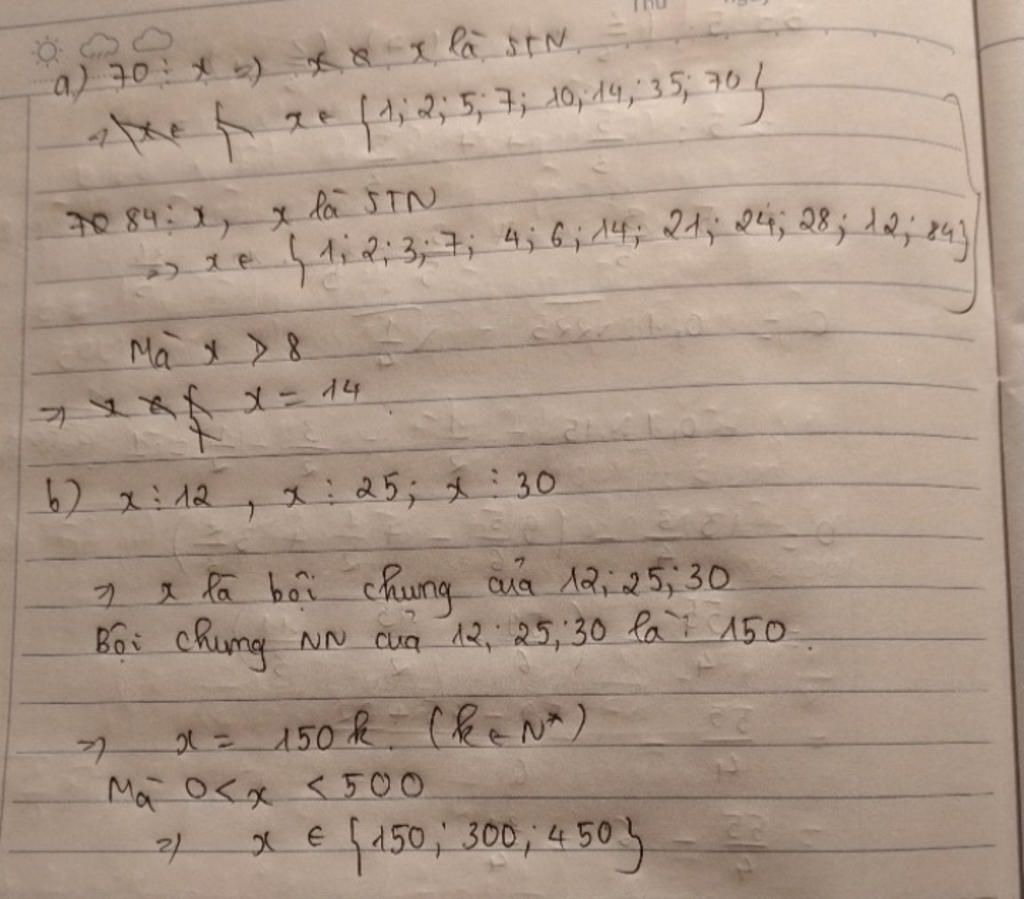 a) 70 ⋮ x => x là STN
=> x ∈ {1; 2; 5; 7; 10; 14; 35; 70}
84 ⋮ x, x là STN
=> x ∈ {1; 2; 3; 7; 4; 6; 14; 21; 24; 28; 12; 84}
Mà x > 8
=> x = 14
b) x ⋮ 12, x ⋮ 25; x ⋮ 30
=> x là bội chung của 12; 25; 30
Bội chung NN của 12; 25; 30 là: 150
=> x = 150k. (k ∈ N*)
Mà 0 < x < 500
=> x ∈ {150; 300; 450}